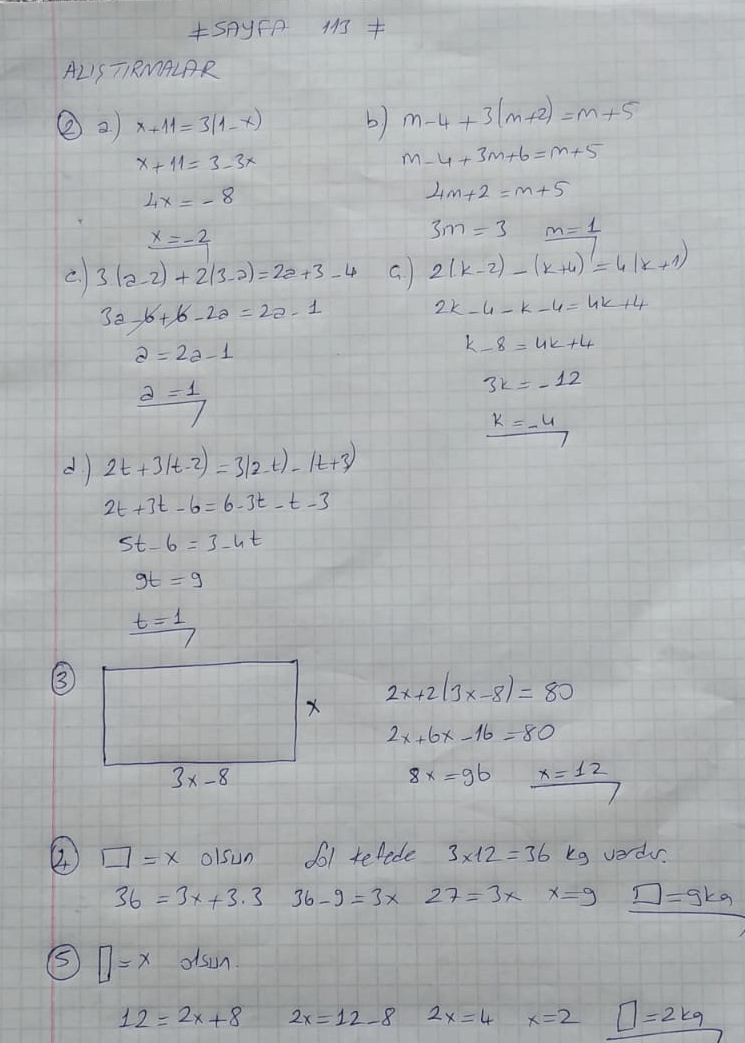 # SAYFA 113 #
ALIŞTIRMALAR
② a.) x+11=3(1-x)
x+11=3-3x
4x=-8
x=-2
b) m-4+3(m+2)=m+5
m-4+3m+6=m+5
4m+2=m+5
3m=3 m=1
c.) 3(a-2)+2(3-a)=2a+3-4
3a-6+6-2a=2a-1
a=2a-1
a=1
ç.) 2(k-2)-(k+4)=4(k+1)
2k-4-k-4=4k+4
k-8=4k+4
3k=-12
k=-4
d.) 2t+3(t-2)=3(2-t)-(t+3)
2t+3t-6=6-3t-t-3
5t-6=3-4t
9t=9
t=1
③ x
3x-8
2x+2(3x-8)=80
2x+6x-16=80
8x=96 x=12
④ □=x olsun Sol kefede 3x12=36 kg vardır.
36=3x+3.3 36-9=3x 27=3x x=9 □=9kg
⑤ ▯=x olsun.
12=2x+8 2x=12-8 2x=4 x=2 ▯=2kg